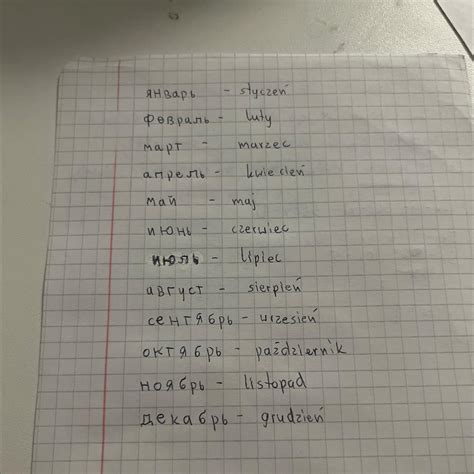 январь - styczeń
февраль - luty
март - marzec
апрель - kwiecień
май - maj
июнь - czerwiec
июль - lipiec
август - sierpień
сентябрь - wrzesień
октябрь - październik
ноябрь - listopad
декабрь - grudzień